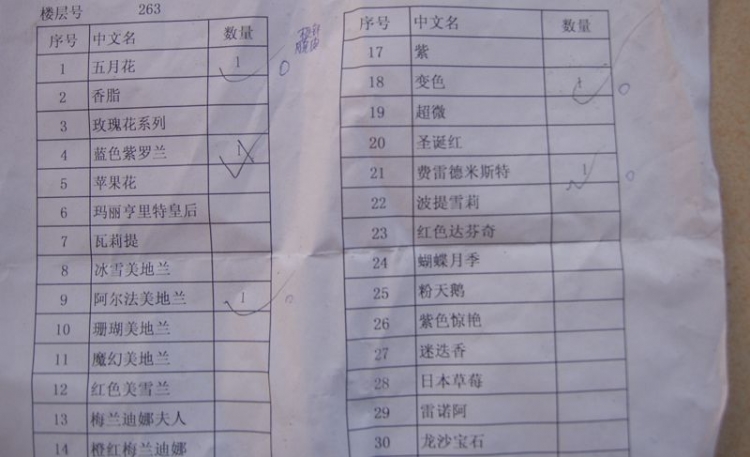 楼层号 263
序号 中文名 数量
1 五月花 1
2 香脂
3 玫瑰花系列
4 蓝色紫罗兰 1
5 苹果花
6 玛丽亨里特皇后
7 瓦莉提
8 冰雪美地兰
9 阿尔法美地兰 1
10 珊瑚美地兰
11 魔幻美地兰
12 红色美雪兰
13 梅兰迪娜夫人
14 橙红梅兰迪娜
序号 中文名 数量
17 紫
18 变色 1
19 超微
20 圣诞红
21 费雷德米斯特 1
22 波提雪莉
23 红色达芬奇
24 蝴蝶月季
25 粉天鹅
26 紫色惊艳
27 迷迭香
28 日本草莓
29 雷诺阿
30 龙沙宝石